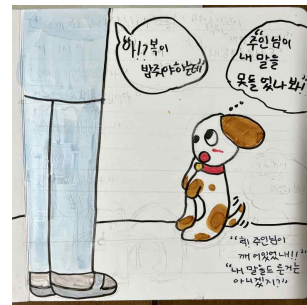 "아!? 복이
밥줘야하는데"
"주인님이
내 말을
못들었나봐!"
"헉! 주인님이
깨어있었내!!"
"내 말을드른거는
아니겠지?"